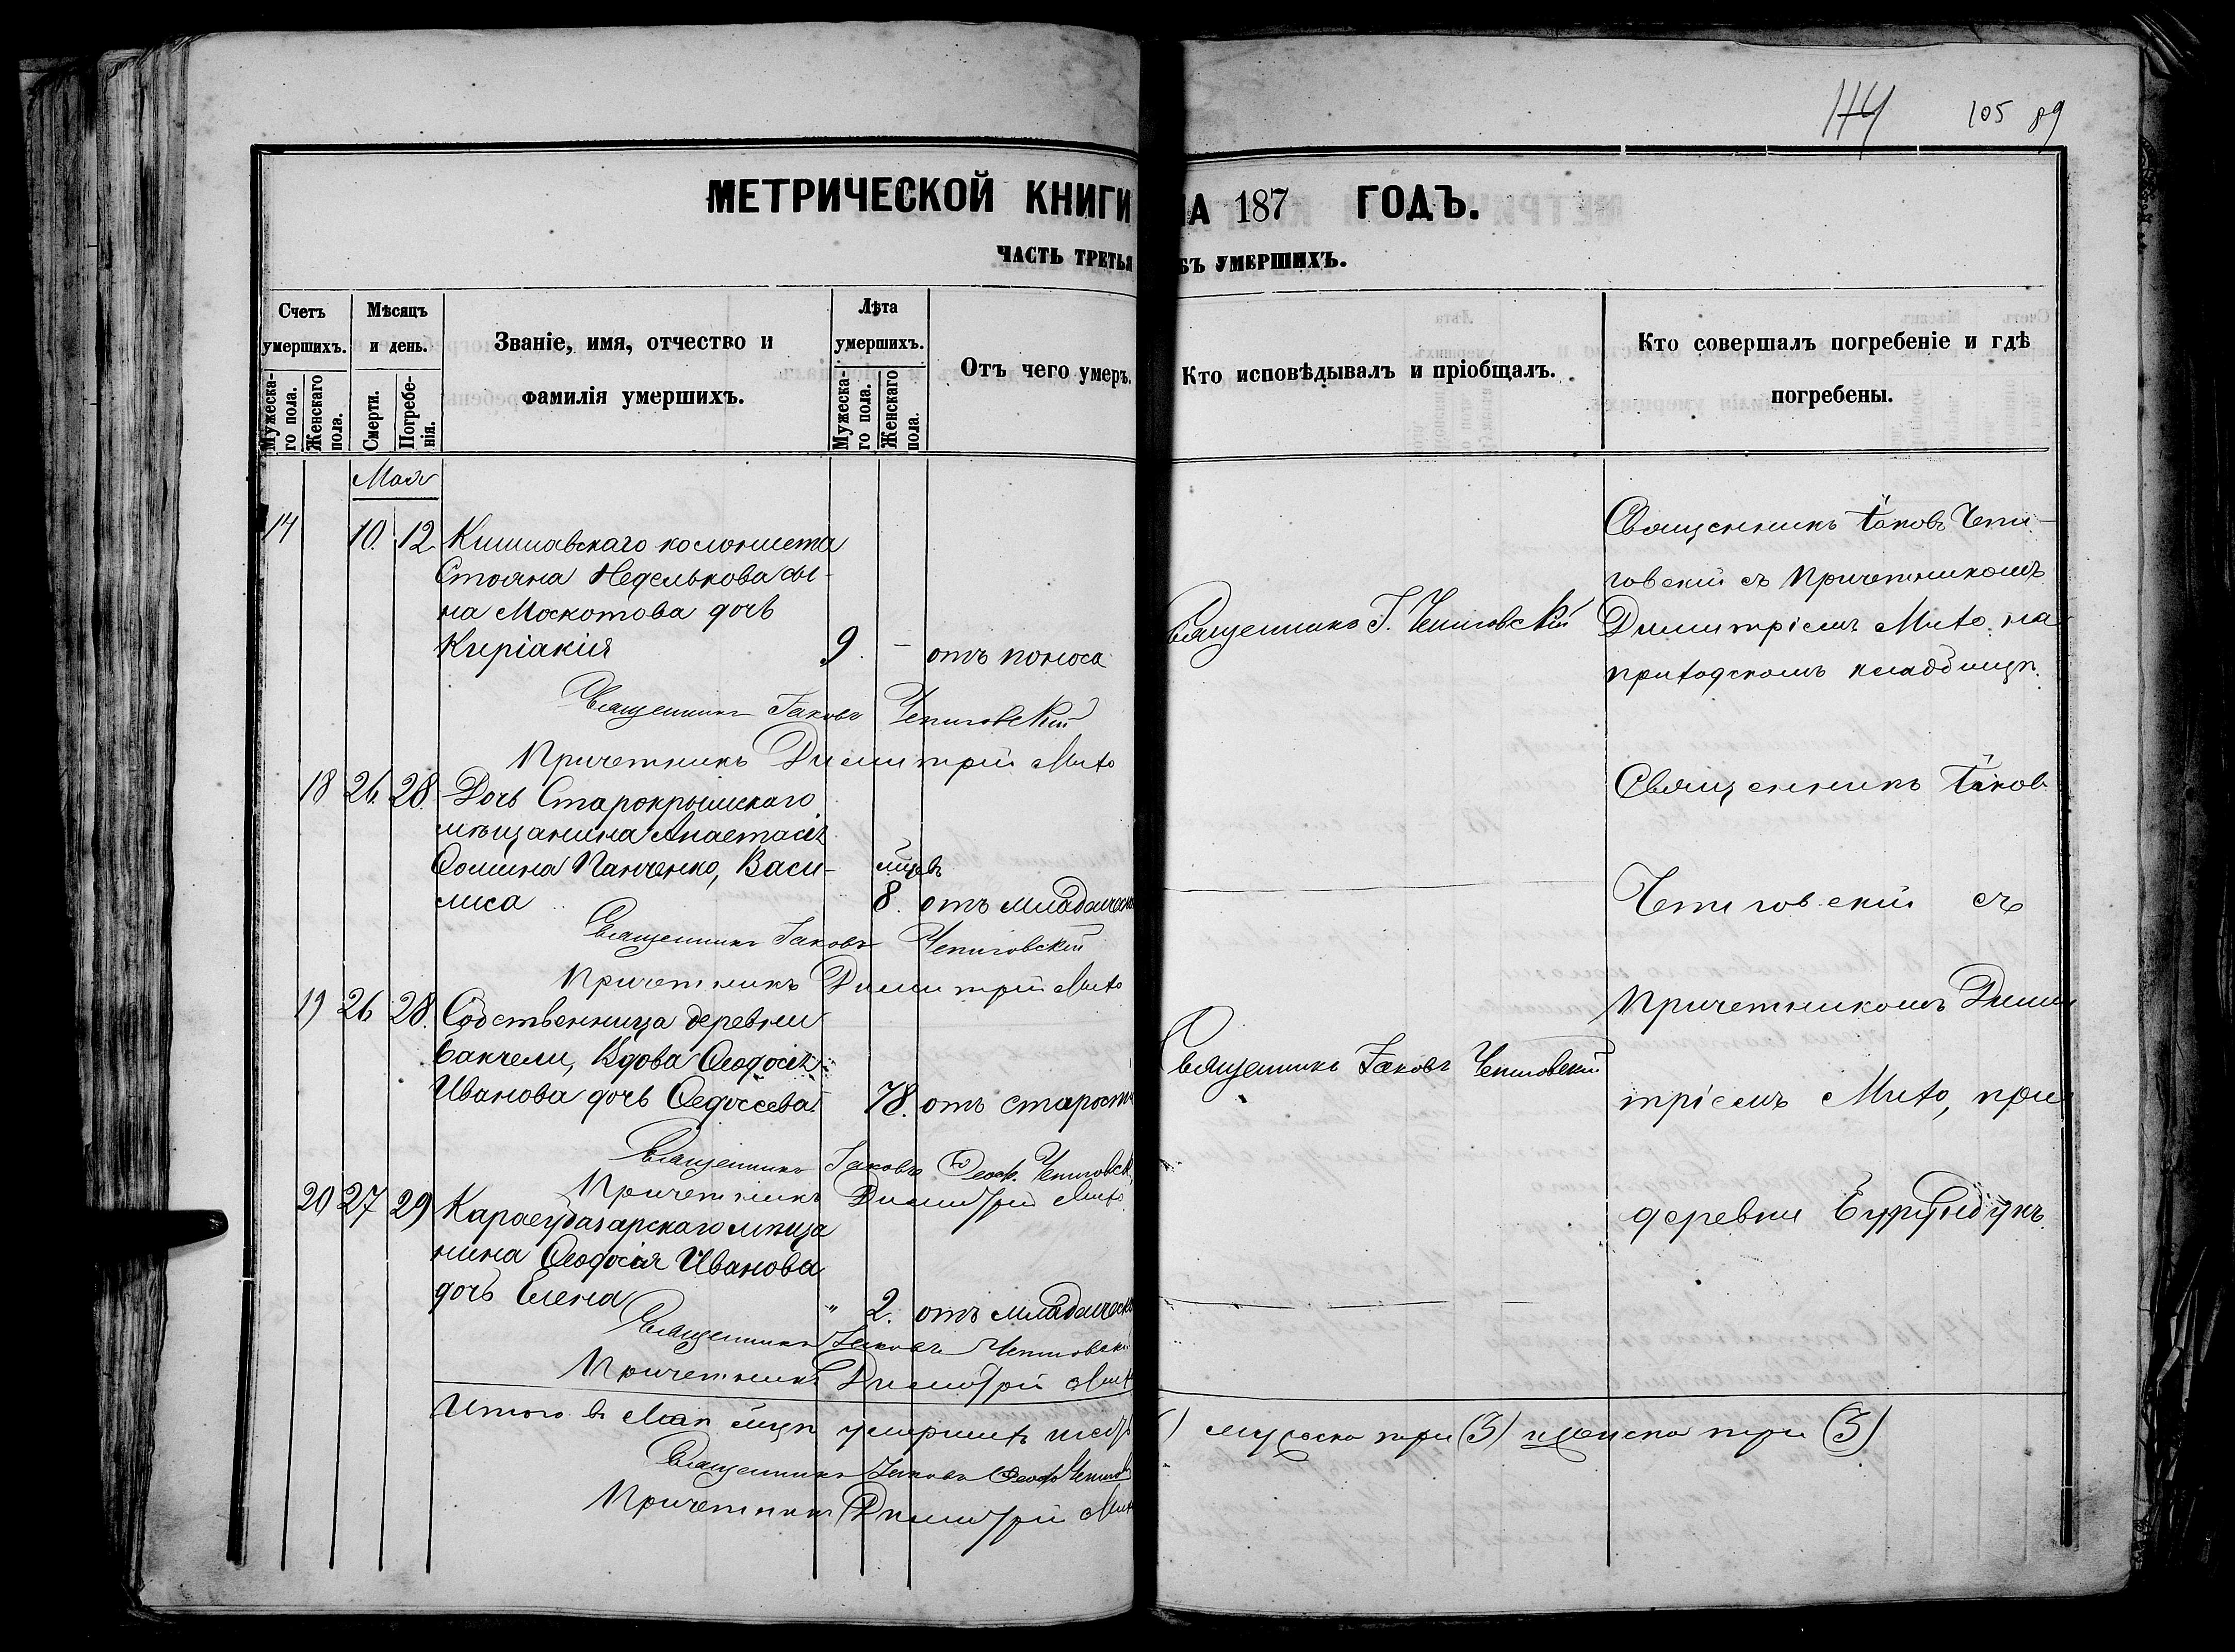 105 89
МЕТРИЧЕСКОЙ КНИГИ НА 187 ГОДЪ.
ЧАСТЬ ТРЕТЬЯ ОБЪ УМЕРШИХЪ.
Счетъ умершихъ.
Мужеска-го пола.
Женскаго пола.
Мѣсяцъ и день.
Смерти.
Погребе-нія.
Званіе, имя, отчество и фамилія умершихъ.
Лѣта умершихъ.
Мужеска-го пола.
Женскаго пола.
Отъ чего умеръ.
Кто исповѣдывалъ и пріобщалъ.
Кто совершалъ погребеніе и гдѣ погребены.
Мая
14 10. 12. Кишлавскаго колониста
Стояна Неделькова сы-
на Москотова дочь
Киріакія 9. – отъ поноса
Священникъ І. Чепиговскій
Священникъ Іаковъ Чепи-
говскій съ причетникомъ
Димитріемъ Михо на
приходскомъ кладбищѣ.
Священникъ Іаковъ Чепиговскій
Причетникъ Димитрій Михо
18 26. 28. Дочь Старокрымскаго
мѣщанина Анастасія
Фомина Панченко, Васи-
лиса 8. отъ младенческ
Священникъ Іаковъ Чепиговскій
Причетникъ Димитрій Михо
19 26 28. Собственница деревни
Бакчели, Вдова Феодосія
Иванова дочь Федосеева 78. отъ старости
Священникъ Іаковъ Чепиговскій
Священникъ Іаковъ Феоф. Чепиговск
Причетникъ Димитрій Михо
20 27 29 Карасубазарскаго мѣща
нина Феодосія Иванова
дочь Елена " 2. отъ младенческ
Священникъ Іаковъ Чепиговскі
Причетникъ Димитрій Мих
Священникъ Іаков
Чепиговскій съ
Причетникомъ Дими
тріемъ Михо, при
деревни
Итого въ Маѣ мцѣ умершихъ шесть
) мужеска три (3) женска три (3)
Священникъ Іаковъ Феоф Чепигов
Причетникъ Димитрій Мих